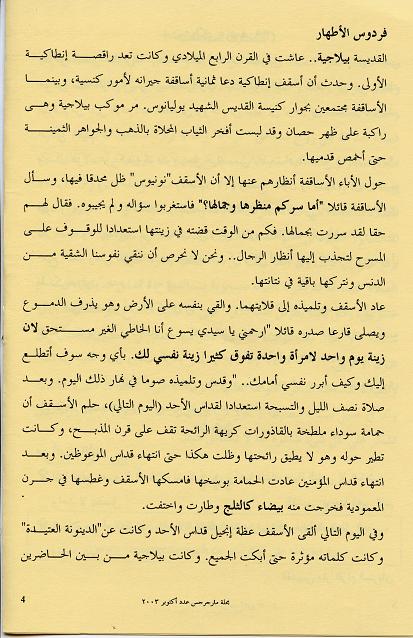 فردوس الأطهار
القديسة بيلاجية.. عاشت في القرن الرابع الميلادي وكانت تعد راقصة إنطاكية
الأولى. وحدث أن أسقف إنطاكية دعا ثمانية أساقفة جيرانه لأمور كنسية، وبينما
الأساقفة مجتمعين بجوار كنيسة القديس الشهيد يوليانوس. مر موكب بيلاجية وهى
راكبة على ظهر حصان وقد لبست أفخر الثياب المحلاة بالذهب والجواهر الثمينة
حتى أخمص قدميها.
حول الأباء الأساقفة أنظارهم عنها إلا أن الأسقف "نونيوس" ظل محدقا فيها، وسأل
الأساقفة قائلا "أما سركم منظرها وجمالها؟" فاستغربوا سؤاله ولم يجيبوه. فقال لهم
حقا لقد سررت بجمالها. فكم من الوقت قضته في زينتها استعدادا للوقوف على
المسرح لتجذب إليها أنظار الرجال.. ونحن لا نحرص أن ننقي نفوسنا الشقية من
الدنس ونتركها باقية في نتانتها.
عاد الأسقف وتلميذه إلى قلايتهما. والقي بنفسه على الأرض وهو يذرف الدموع
ويصلى قارعا صدره قائلا "ارحمني يا سيدي يسوع أنا الخاطي الغير مستحق لان
زينة يوم واحد لامرأة واحدة تفوق كثيرا زينة نفسي لك. بأي وجه سوف أتطلع
إليك وكيف أبرر نفسي أمامك.. "وقدس وتلميذه صوما في نهار ذلك اليوم. وبعد
صلاة نصف الليل والتسبحة استعدادا لقداس الأحد (اليوم التالي)، حلم الأسقف أن
حمامة سوداء ملطخة بالقاذورات كريهة الرائحة تقف على قرن المذبح، وكانت
تطير حوله وهو لا يطيق رائحتها وظلت هكذا حتى انتهاء قداس الموعوظين. وبعد
انتهاء قداس المؤمنين عادت الحمامة بوسخها فامسكها الأسقف وغطسها في جرن
المعمودية فخرجت منه بيضاء كالثلج وطارت واختفت.
وفي اليوم التالي ألقى الأسقف عظة إنجيل قداس الأحد وكانت عن"الدينونة العتيدة"
وكانت كلماته مؤثرة حتى أبكت الجميع. وكانت بيلاجية من بين الحاضرين
مجلة مارجرجس عدد أكتوبر ٢٠٠٣
4